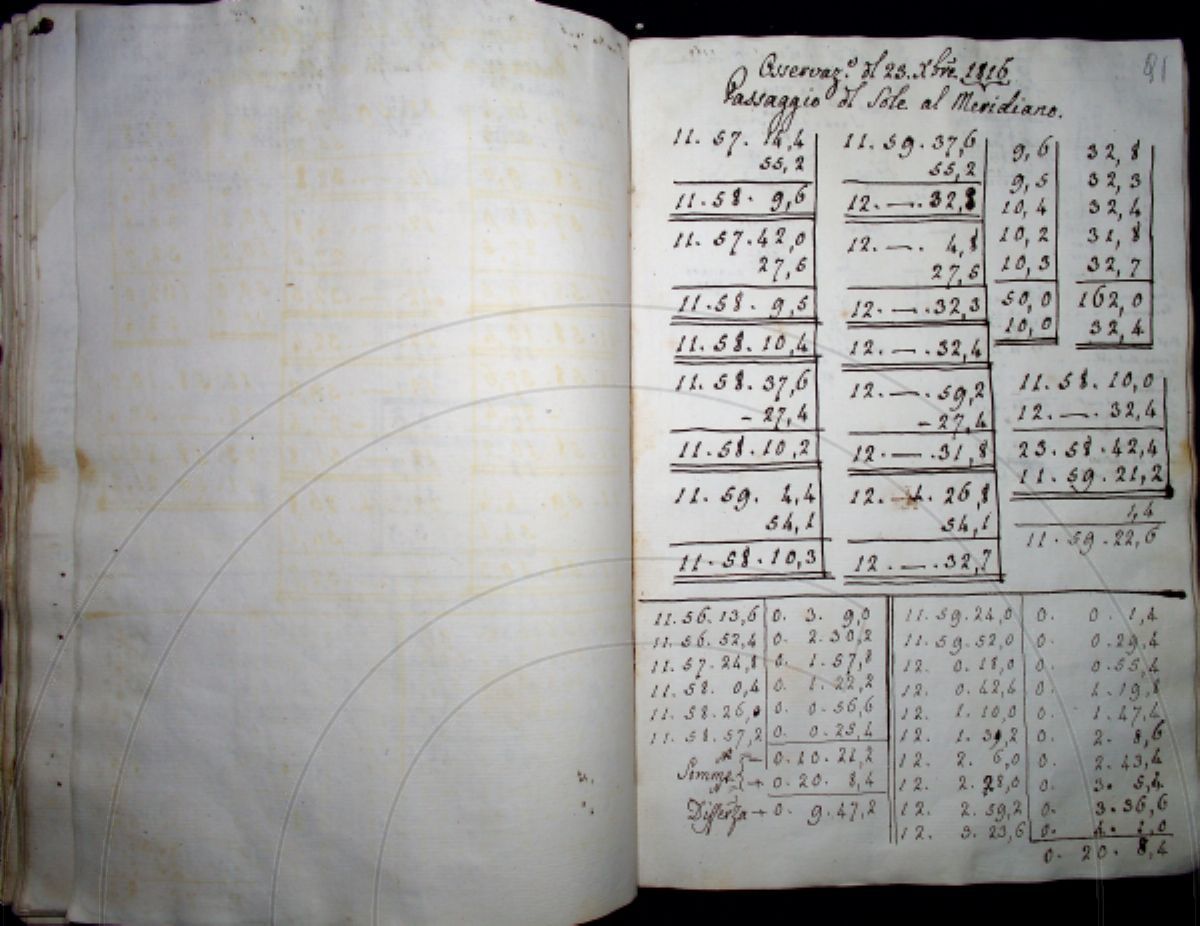 81
Osservaz.e dl 23. Xbre 1816
Passaggio dl Sole al Meridiano.
11. 57. 14,4
55,2
11. 58. 9,6
11. 57. 42,0
27,5
11. 58. 9,5
11. 58. 10,4
11. 58. 37,6
- 27,4
11. 58. 10,2
11. 59. 4,4
54,1
11. 58. 10,3
11. 59. 37,6
55,2
12. —. 32,8
12. —. 4,8
27,5
12. —. 32,3
12. —. 32,4
12. —. 59,2
- 27,4
12. —. 31,8
12. 1. 26,8
54,1
12. —. 32,7
9,6
9,5
10,4
10,2
10,3
50,0
10,0
32,8
32,3
32,4
31,8
32,7
162,0
32,4
11. 58. 10,0
12. —. 32,4
23. 58. 42,4
11. 59. 21,2
1,4
11. 59. 22,6
11. 56. 13,6 0. 3. 9,0
11. 56. 52,4 0. 2. 30,2
11. 57. 24,8 0. 1. 57,8
11. 58. 0,4 0. 1. 22,2
11. 58. 26,0 0. 0. 56,6
11. 58. 57,2 0. 0. 25,4
— 0. 10. 21,2
Somme + 0. 20. 8,4
Differza + 0. 9. 47,2
11. 59. 24,0 0. 0. 1,4
11. 59. 52,0 0. 0. 29,4
12. 0. 18,0 0. 0. 55,4
12. 0. 42,4 0. 1. 19,8
12. 1. 10,0 0. 1. 47,4
12. 1. 39,2 0. 2. 8,6
12. 2. 6,0 0. 2. 43,4
12. 2. 28,0 0. 3. 5,4
12. 2. 59,2 0. 3. 36,6
12. 3. 23,6 0. 4. 1,0
0. 20. 8,4